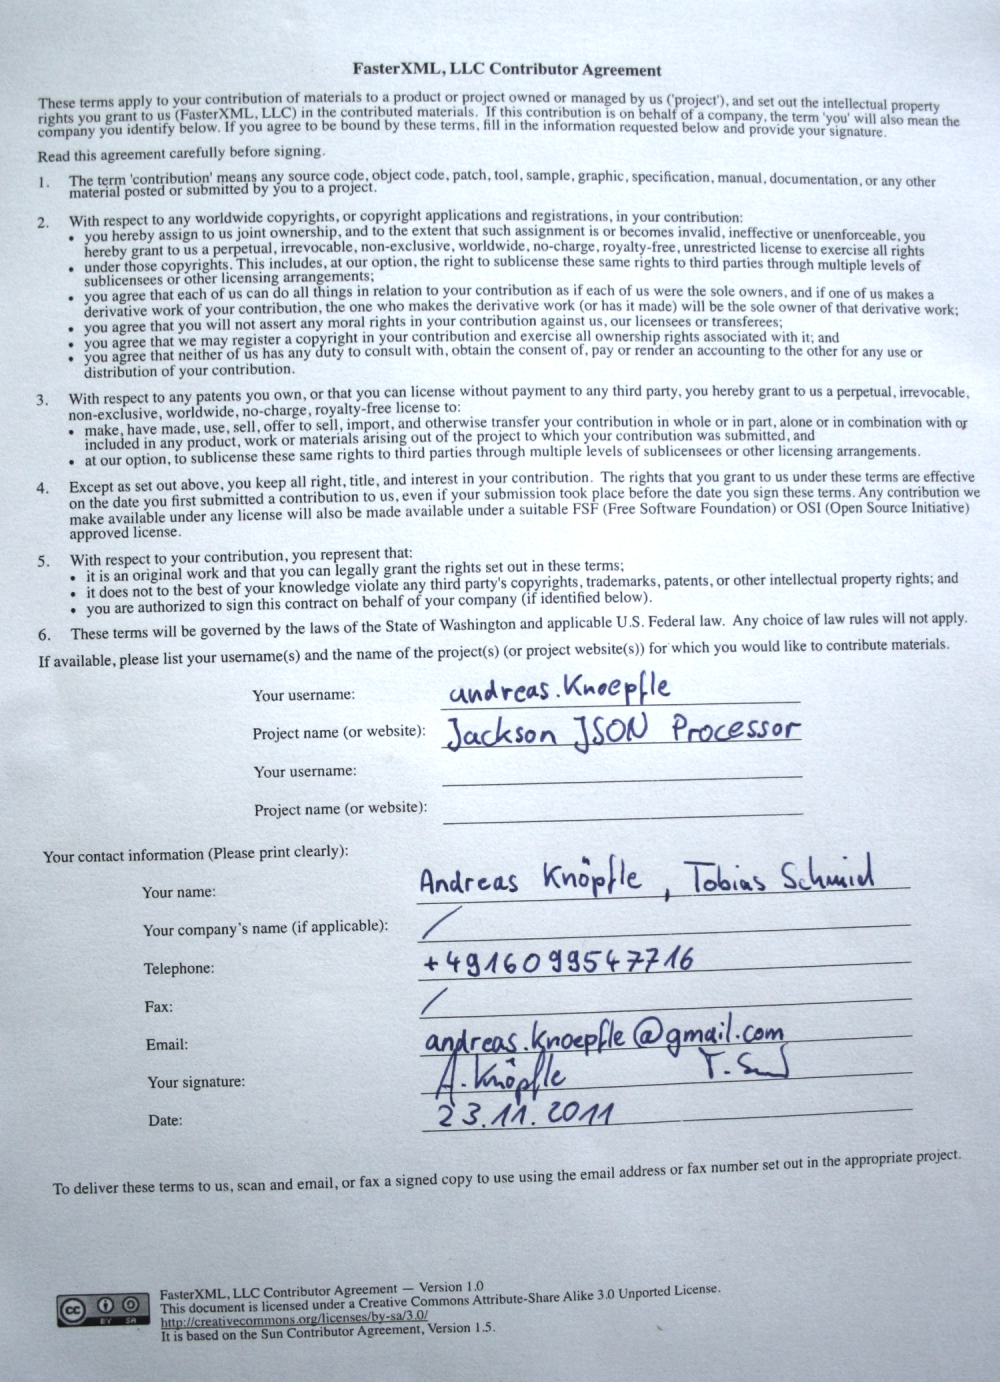 FasterXML, LLC Contributor Agreement
These terms apply to your contribution of materials to a product or project owned or managed by us ('project'), and set out the intellectual property
rights you grant to us (FasterXML, LLC) in the contributed materials. If this contribution is on behalf of a company, the term 'you' will also mean the
company you identify below. If you agree to be bound by these terms, fill in the information requested below and provide your signature.
Read this agreement carefully before signing.
1. The term 'contribution' means any source code, object code, patch, tool, sample, graphic, specification, manual, documentation, or any other
material posted or submitted by you to a project.
2. With respect to any worldwide copyrights, or copyright applications and registrations, in your contribution:
• you hereby assign to us joint ownership, and to the extent that such assignment is or becomes invalid, ineffective or unenforceable, you
hereby grant to us a perpetual, irrevocable, non-exclusive, worldwide, no-charge, royalty-free, unrestricted license to exercise all rights
• under those copyrights. This includes, at our option, the right to sublicense these same rights to third parties through multiple levels of
sublicensees or other licensing arrangements;
• you agree that each of us can do all things in relation to your contribution as if each of us were the sole owners, and if one of us makes a
derivative work of your contribution, the one who makes the derivative work (or has it made) will be the sole owner of that derivative work;
• you agree that you will not assert any moral rights in your contribution against us, our licensees or transferees;
• you agree that we may register a copyright in your contribution and exercise all ownership rights associated with it; and
• you agree that neither of us has any duty to consult with, obtain the consent of, pay or render an accounting to the other for any use or
distribution of your contribution.
3. With respect to any patents you own, or that you can license without payment to any third party, you hereby grant to us a perpetual, irrevocable,
non-exclusive, worldwide, no-charge, royalty-free license to:
• make, have made, use, sell, offer to sell, import, and otherwise transfer your contribution in whole or in part, alone or in combination with or
included in any product, work or materials arising out of the project to which your contribution was submitted, and
• at our option, to sublicense these same rights to third parties through multiple levels of sublicensees or other licensing arrangements.
4. Except as set out above, you keep all right, title, and interest in your contribution. The rights that you grant to us under these terms are effective
on the date you first submitted a contribution to us, even if your submission took place before the date you sign these terms. Any contribution we
make available under any license will also be made available under a suitable FSF (Free Software Foundation) or OSI (Open Source Initiative)
approved license.
5. With respect to your contribution, you represent that:
• it is an original work and that you can legally grant the rights set out in these terms;
• it does not to the best of your knowledge violate any third party's copyrights, trademarks, patents, or other intellectual property rights; and
• you are authorized to sign this contract on behalf of your company (if identified below).
6. These terms will be governed by the laws of the State of Washington and applicable U.S. Federal law. Any choice of law rules will not apply.
If available, please list your username(s) and the name of the project(s) (or project website(s)) for which you would like to contribute materials.
Your username: andreas.Knoepfle
Project name (or website): Jackson JSON Processor
Your username:
Project name (or website):
Your contact information (Please print clearly):
Your name: Andreas Knöpfle, Tobias Schmid
Your company's name (if applicable): /
Telephone: +4916099547716
Fax: /
Email: andreas.knoepfle@gmail.com
Your signature: A. Knöpfle
Date: 23.11.2011
To deliver these terms to us, scan and email, or fax a signed copy to use using the email address or fax number set out in the appropriate project.
cc BY SA
FasterXML, LLC Contributor Agreement — Version 1.0
This document is licensed under a Creative Commons Attribute-Share Alike 3.0 Unported License.
http://creativecommons.org/licenses/by-sa/3.0/
It is based on the Sun Contributor Agreement, Version 1.5.